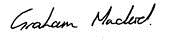 Graham Macleod.